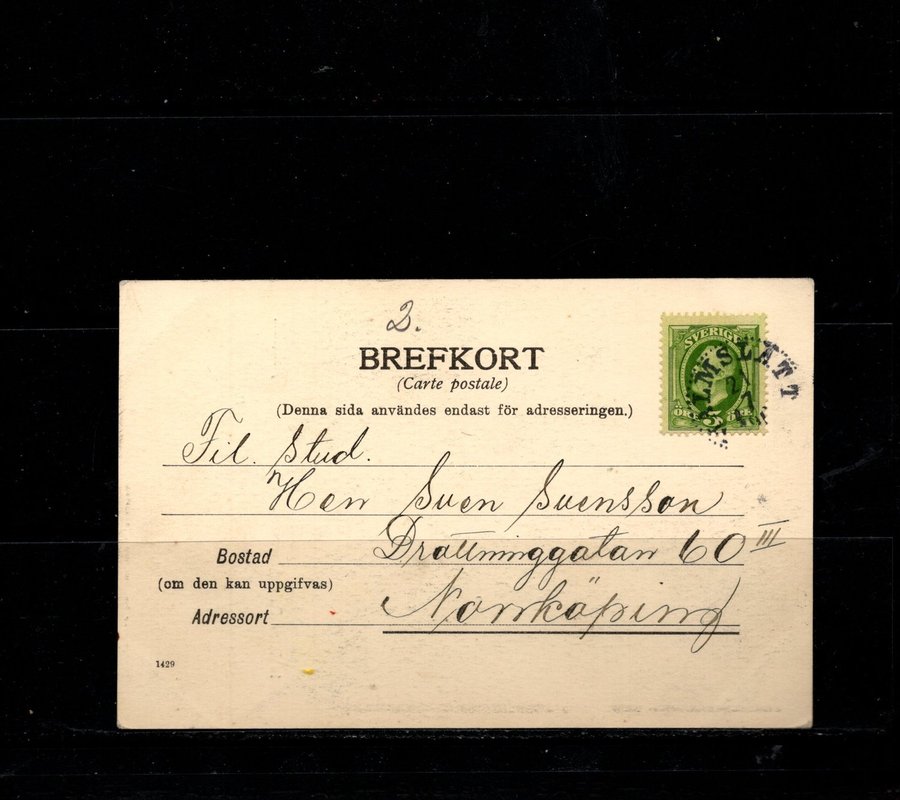 2.
BREFKORT
(Carte postale)
(Denna sida användes endast för adresseringen.)
SVERIGE
ÖRE 5 ÖRE
MALMSLÄTT
Fil. Stud.
Herr Sven Svensson
Drottninggatan 60 III
Bostad
(om den kan uppgifvas)
Norrköping
Adressort
1429